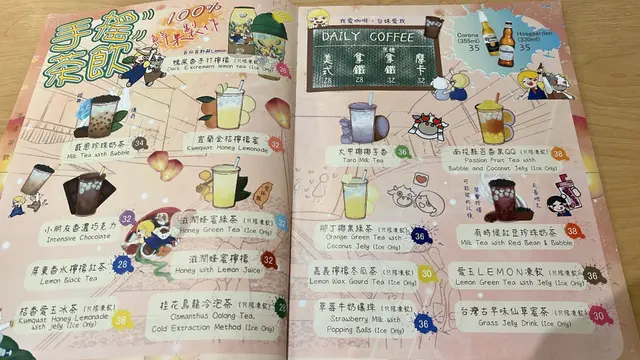 手搖茶飲
100%
鮮果製作
鴨屎香手打檸檬 (只限凍飲)
Duck Excrement lemon tea (Ice Only)
戲團珍珠奶茶 34
Milk Tea with Bubble
宜蘭金桔檸檬蜜 32
Kumquat Honey Lemonade
小朋友香濃巧克力 32
Intensive Chocolate
滋潤蜂蜜綠茶 (只限凍飲) 32
Honey Green Tea (Ice Only)
屏東香水檸檬紅茶 28
Lemon Black Tea
滋潤蜂蜜檸檬 32
Honey with Lemon Juice
桔香愛玉冰茶 (只限凍飲) 36
Kumquat Honey Lemonade
with Jelly (Ice Only)
桂花烏龍冷泡茶 (只限凍飲) 28
Osmanthus Oolong Tea,
Cold Extraction Method (Ice Only)
我愛咖啡，台妹愛我
DAILY COFFEE
美式 28
拿鐵 28
焦糖拿鐵 32
摩卡 32
Corona
(355ml)
35
Hoegaarden
(330ml)
35
大甲椰椰子香 36
Taro Milk Tea
南投馥百香果QQ (只限凍飲) 38
Passion Fruit Tea with
Bubble and Coconut Jelly (Ice Only)
柳丁椰果綠茶 (只限凍飲) 36
Orange Green Tea with
Coconut Jelly (Ice Only)
有時候紅豆珍珠奶茶 38
Milk Tea with Red Bean & Bubble
嘉義檸檬冬瓜茶 (只限凍飲) 30
Lemon Wax Gourd Tea (Ice Only)
愛玉LEMON凍飲 (只限凍飲) 36
Lemon Green Tea with Jelly (Ice Only)
草莓牛奶爆珠 (只限凍飲) 36
Strawberry Milk with
Popping Balls (Ice Only)
台灣古早味仙草蜜茶 (只限凍飲) 30
Grass Jelly Drink (Ice Only)